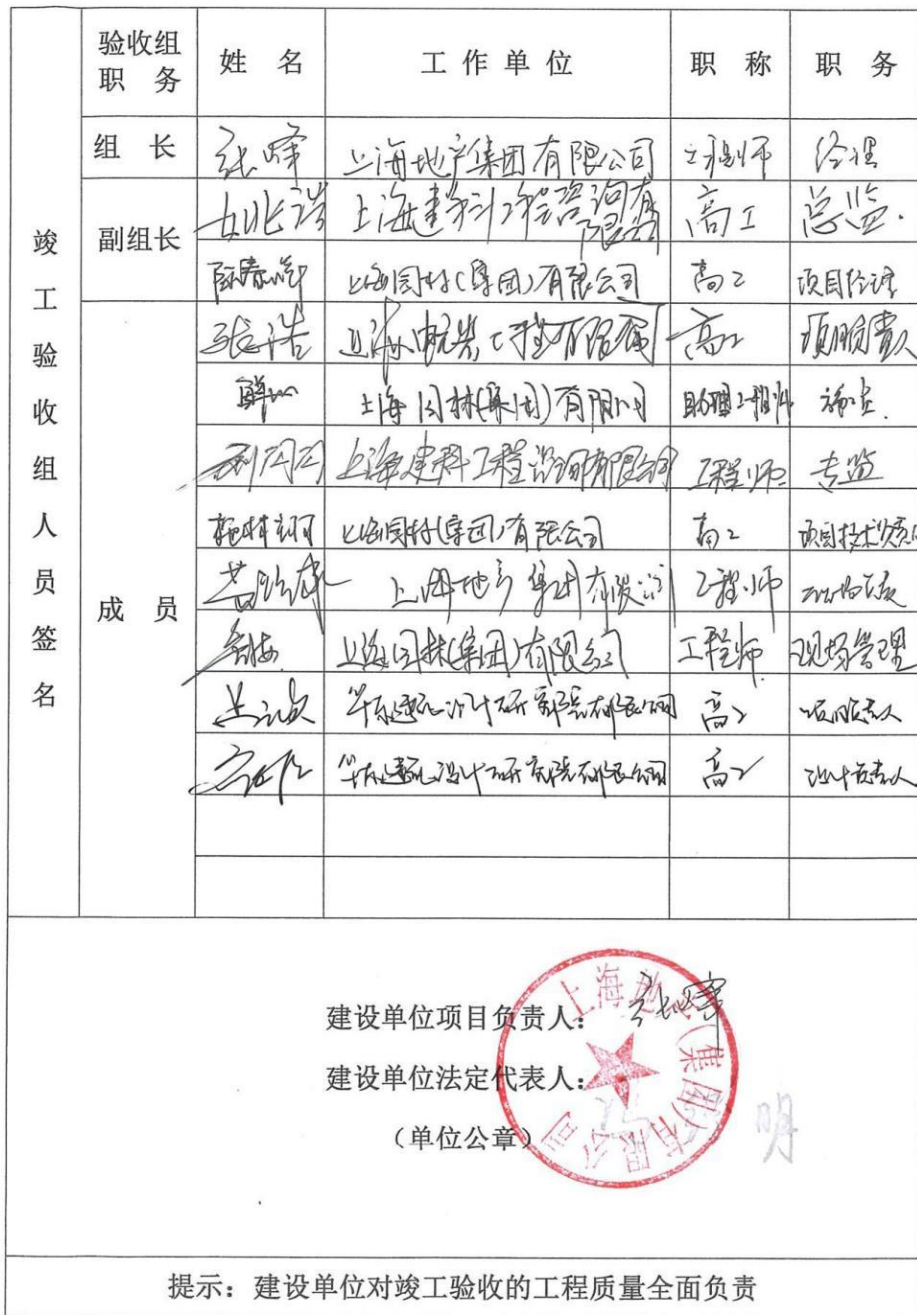 验收组职务 姓名 工作单位 职称 职务
竣工验收组人员签名
组长 张峰 上海地产集团有限公司 工程师 经理
副组长 上海建科工程咨询有限公司 高工 总监
上海园林(集团)有限公司 高工 项目经理
成员
张浩 高工 项目负责人
上海园林(集团)有限公司 助理工程师
上海建科工程咨询有限公司 工程师 专监
上海园林(集团)有限公司 高工 项目技术负责
上海地产集团有限公司 工程师
上海园林(集团)有限公司 工程师 现场管理
华东建筑设计研究院有限公司 高工 项目负责人
华东建筑设计研究院有限公司 高工 设计负责人
建设单位项目负责人: 张峰
建设单位法定代表人:
明
(单位公章)
上海地产(集团)有限公司
提示:建设单位对竣工验收的工程质量全面负责